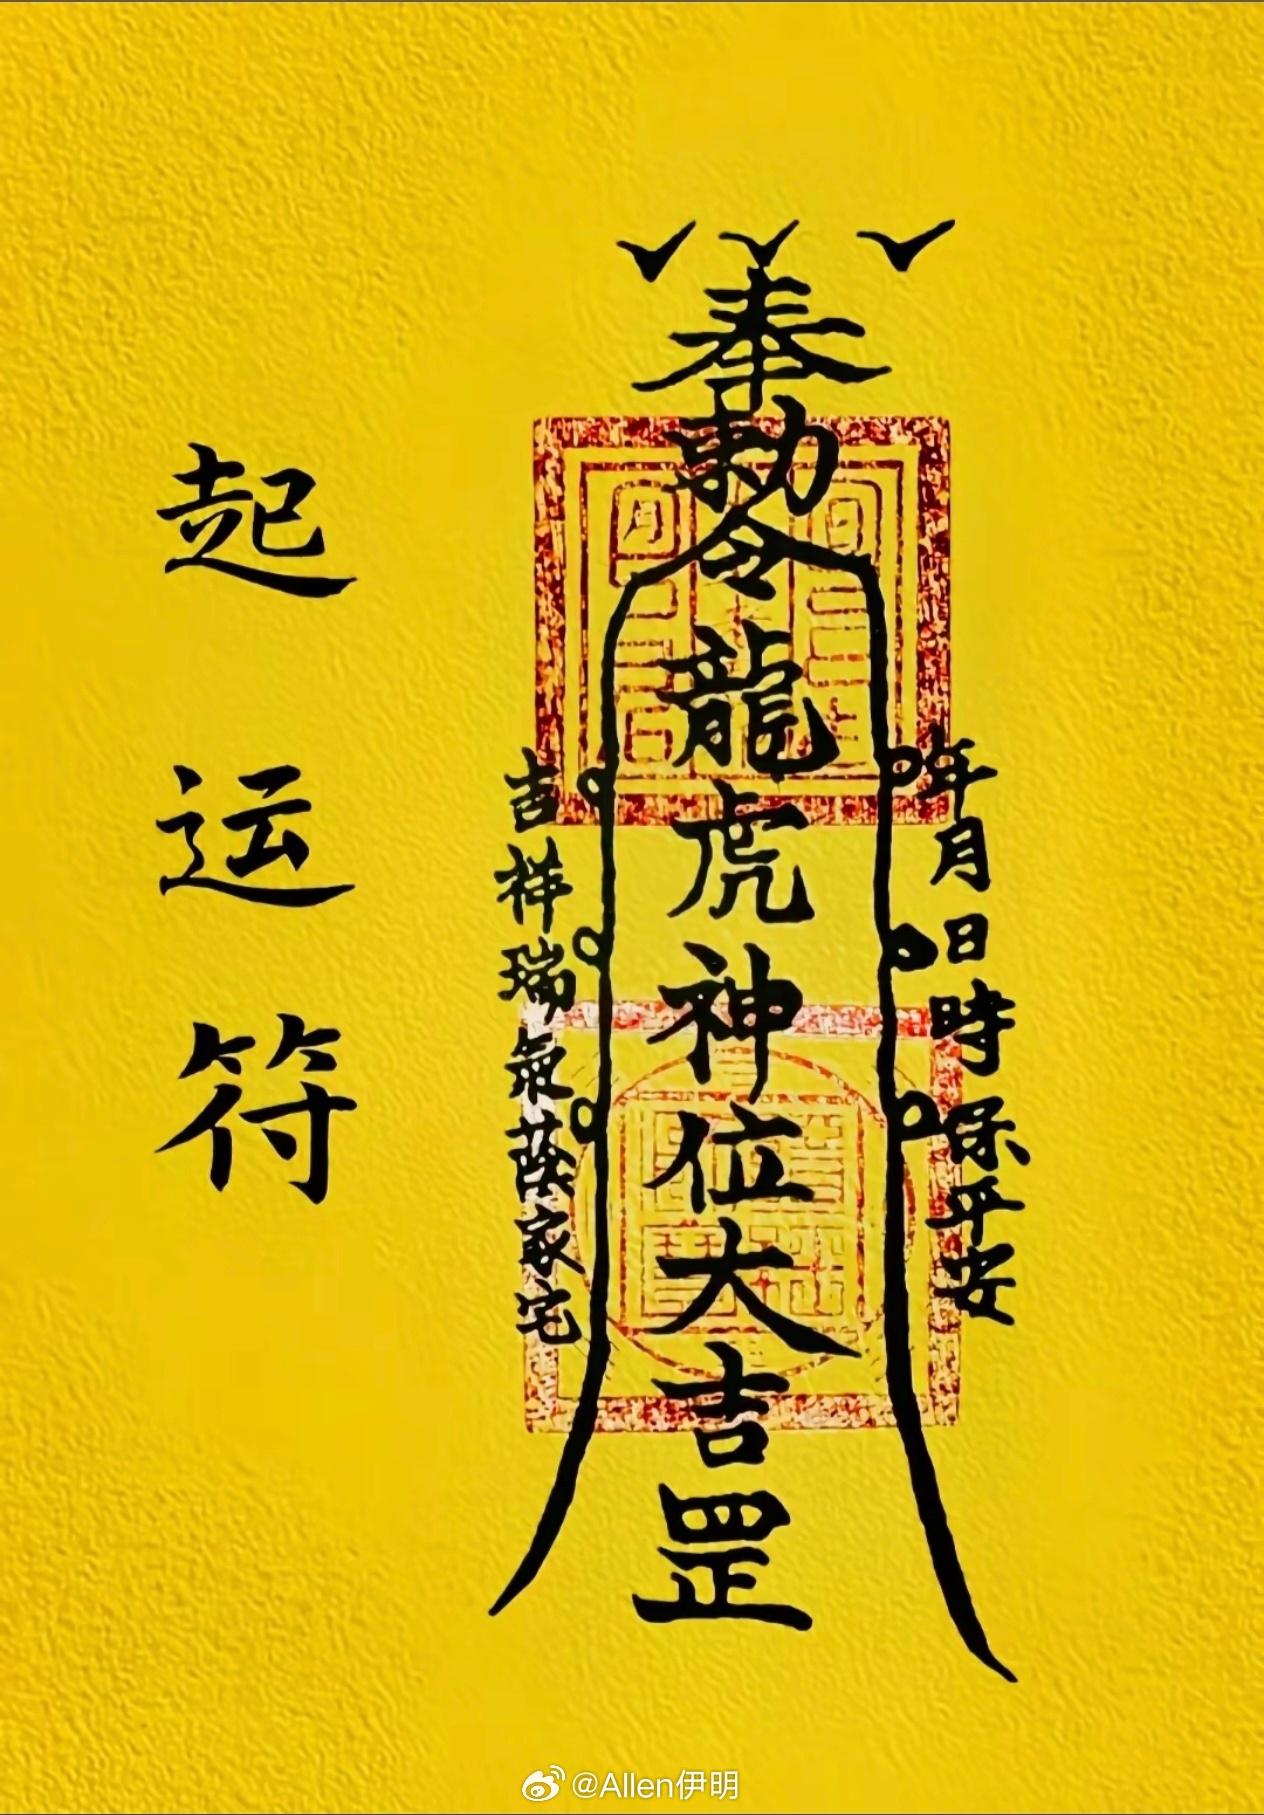 起运符
奉勅令龍虎神位大吉罡
年月日時保平安
吉祥瑞氣蔭家宅
@Allen伊明